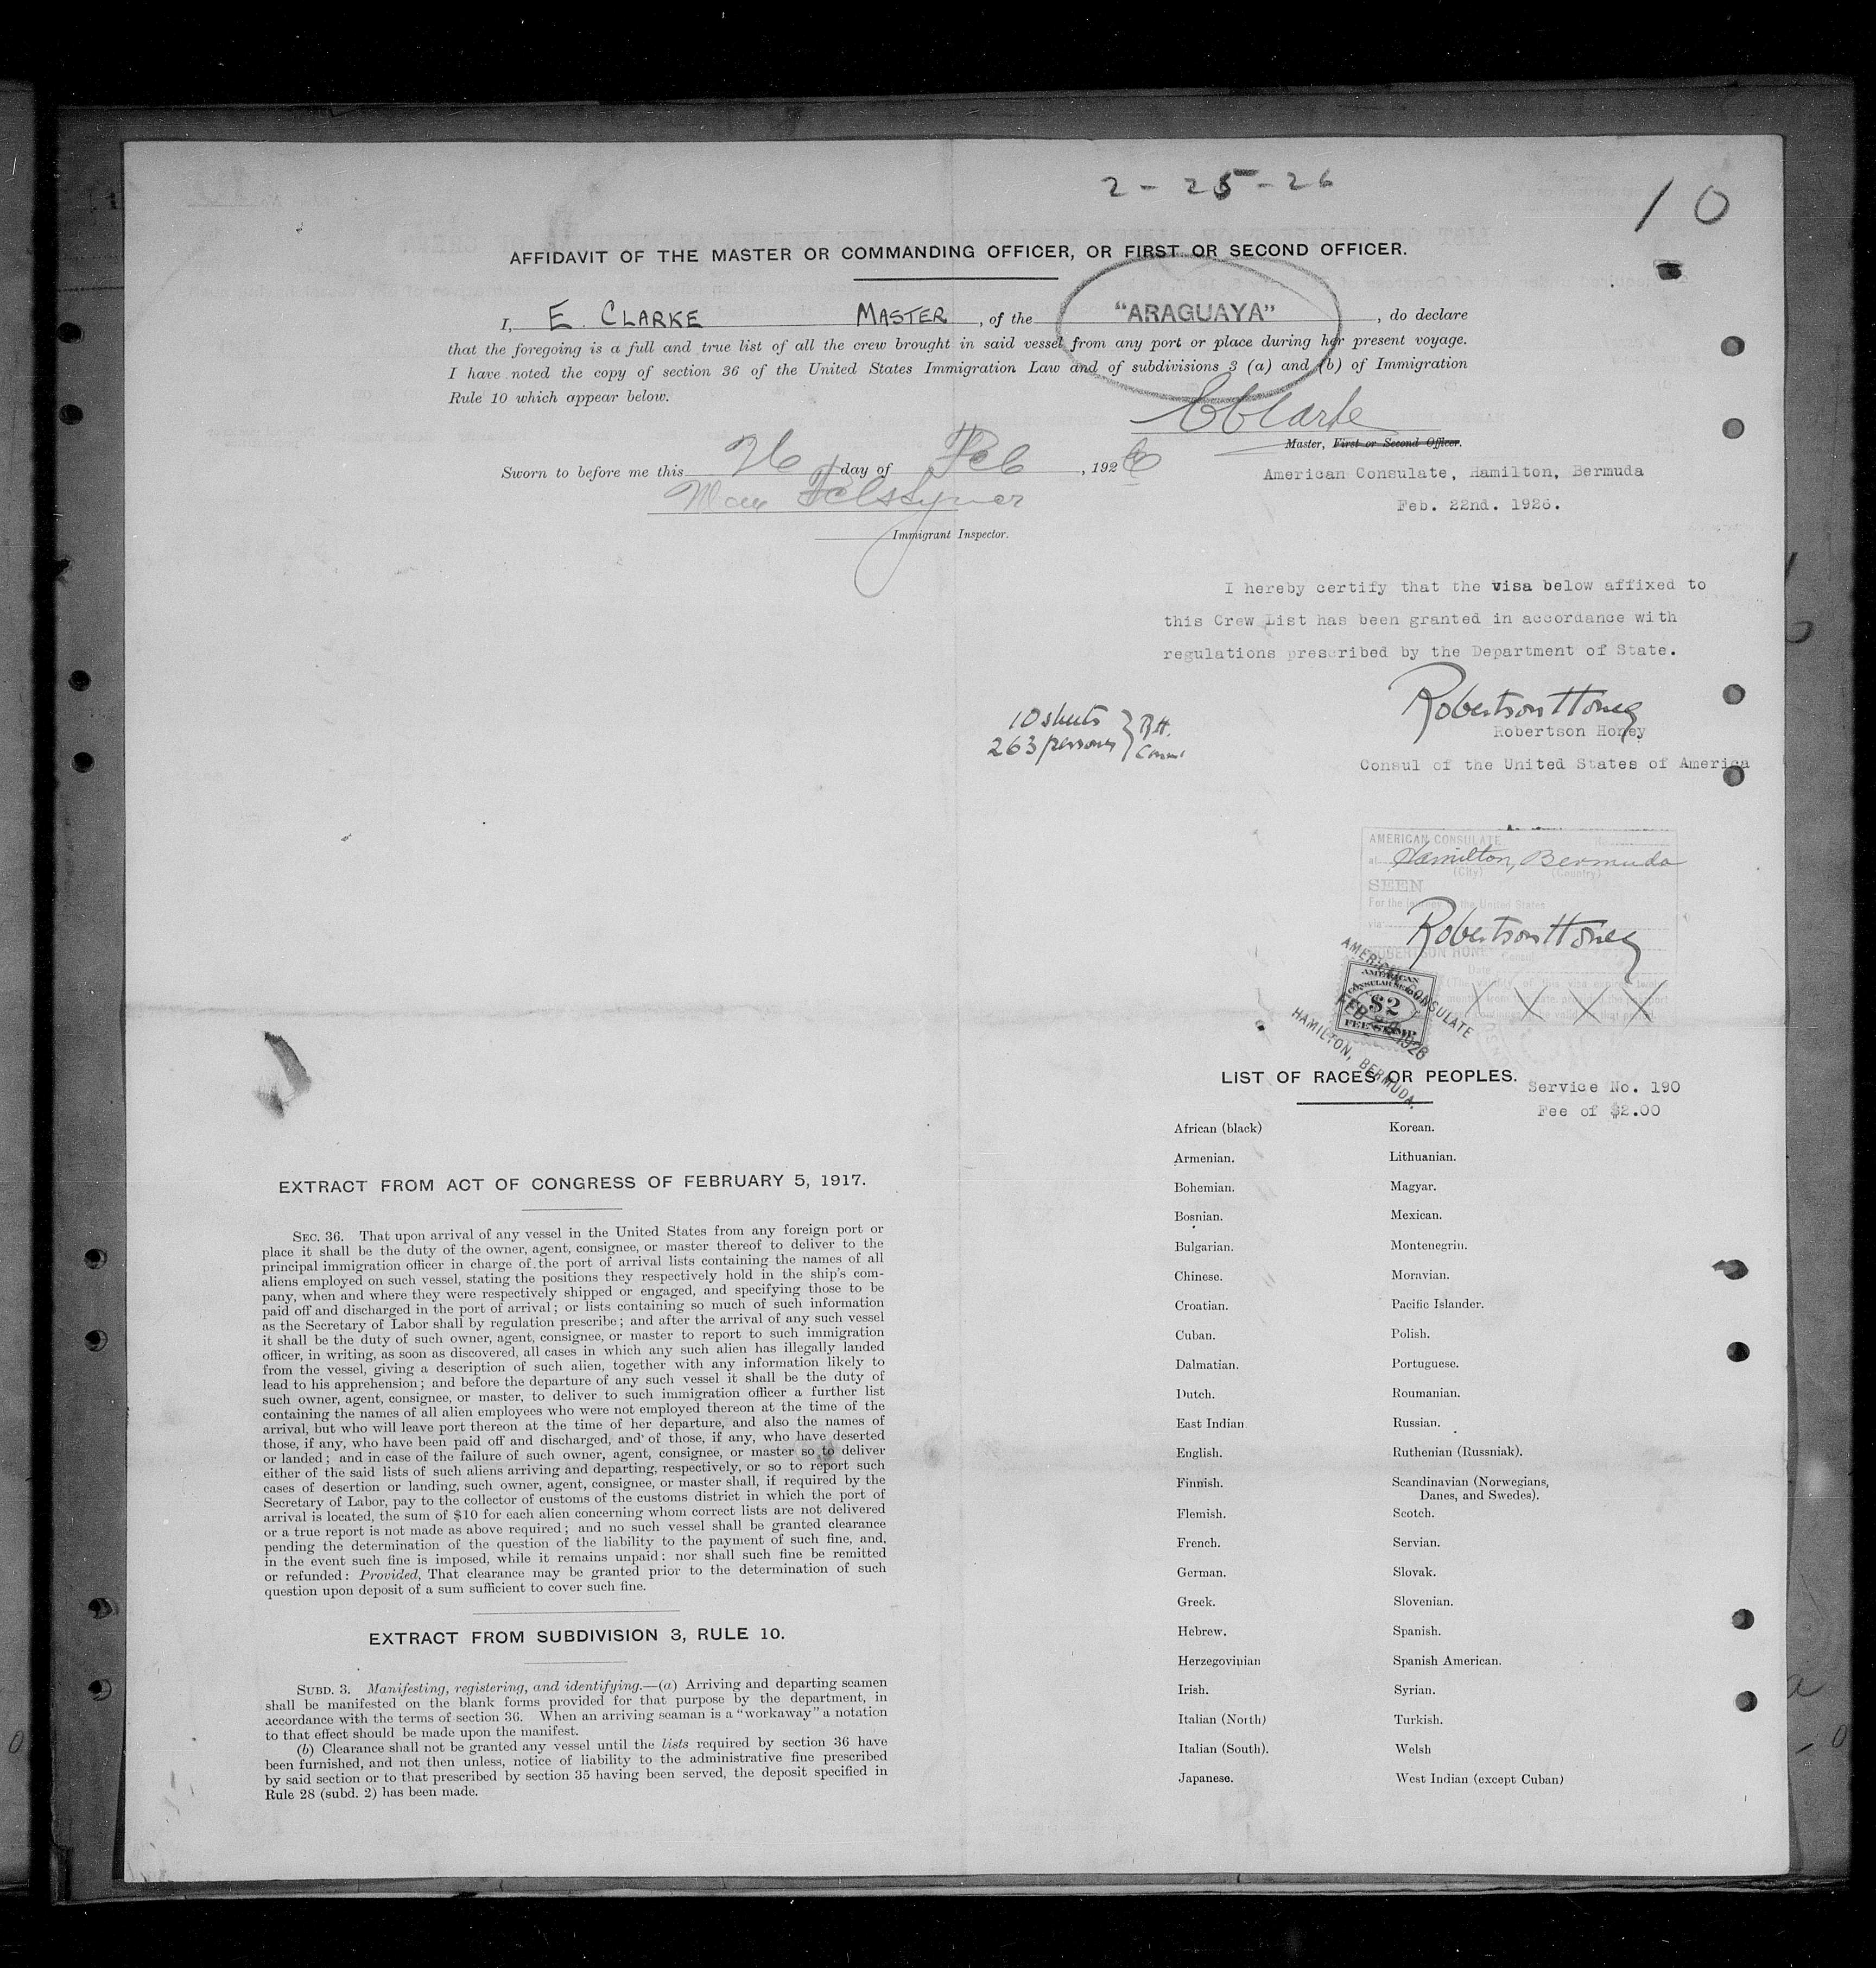 2 - 25 - 26
10
AFFIDAVIT OF THE MASTER OR COMMANDING OFFICER, OR FIRST OR SECOND OFFICER.
I, E. CLARKE MASTER, of the "ARAGUAYA", do declare
that the foregoing is a full and true list of all the crew brought in said vessel from any port or place during her present voyage.
I have noted the copy of section 36 of the United States Immigration Law and of subdivisions 3 (a) and (b) of Immigration
Rule 10 which appear below.
EClarke
Master, First or Second Officer.
Sworn to before me this 26 day of Feb, 1926
Immigrant Inspector.
American Consulate, Hamilton, Bermuda
Feb. 22nd. 1926.
I hereby certify that the visa below affixed to
this Crew List has been granted in accordance with
regulations prescribed by the Department of State.
Robertson Honey
Robertson Honey
Consul of the United States of America
10 sheets
263 persons } R.H.
Consul
AMERICAN CONSULATE
at Hamilton, Bermuda
(City) (Country)
SEEN
For the journey to the United States
via
Robertson Honey
ROBERTSON HONEY
Consul
Date
X X X X
AMERICAN CONSULATE
FEB 1926
HAMILTON, BERMUDA.
AMERICAN
CONSULAR SERVICE
$2
FEE STAMP
Service No. 190
Fee of $2.00
EXTRACT FROM ACT OF CONGRESS OF FEBRUARY 5, 1917.
SEC. 36. That upon arrival of any vessel in the United States from any foreign port or
place it shall be the duty of the owner, agent, consignee, or master thereof to deliver to the
principal immigration officer in charge of the port of arrival lists containing the names of all
aliens employed on such vessel, stating the positions they respectively hold in the ship's com-
pany, when and where they were respectively shipped or engaged, and specifying those to be
paid off and discharged in the port of arrival; or lists containing so much of such information
as the Secretary of Labor shall by regulation prescribe; and after the arrival of any such vessel
it shall be the duty of such owner, agent, consignee, or master to report to such immigration
officer, in writing, as soon as discovered, all cases in which any such alien has illegally landed
from the vessel, giving a description of such alien, together with any information likely to
lead to his apprehension; and before the departure of any such vessel it shall be the duty of
such owner, agent, consignee, or master, to deliver to such immigration officer a further list
containing the names of all alien employees who were not employed thereon at the time of the
arrival, but who will leave port thereon at the time of her departure, and also the names of
those, if any, who have been paid off and discharged, and of those, if any, who have deserted
or landed; and in case of the failure of such owner, agent, consignee, or master so to deliver
either of the said lists of such aliens arriving and departing, respectively, or so to report such
cases of desertion or landing, such owner, agent, consignee, or master shall, if required by the
Secretary of Labor, pay to the collector of customs of the customs district in which the port of
arrival is located, the sum of $10 for each alien concerning whom correct lists are not delivered
or a true report is not made as above required; and no such vessel shall be granted clearance
pending the determination of the question of the liability to the payment of such fine, and,
in the event such fine is imposed, while it remains unpaid: nor shall such fine be remitted
or refunded: Provided, That clearance may be granted prior to the determination of such
question upon deposit of a sum sufficient to cover such fine.
EXTRACT FROM SUBDIVISION 3, RULE 10.
SUBD. 3. Manifesting, registering, and identifying.—(a) Arriving and departing seamen
shall be manifested on the blank forms provided for that purpose by the department, in
accordance with the terms of section 36. When an arriving seaman is a "workaway" a notation
to that effect should be made upon the manifest.
(b) Clearance shall not be granted any vessel until the lists required by section 36 have
been furnished, and not then unless, notice of liability to the administrative fine prescribed
by said section or to that prescribed by section 35 having been served, the deposit specified in
Rule 28 (subd. 2) has been made.
LIST OF RACES OR PEOPLES.
African (black)
Armenian.
Bohemian.
Bosnian.
Bulgarian.
Chinese.
Croatian.
Cuban.
Dalmatian.
Dutch.
East Indian
English.
Finnish.
Flemish.
French.
German.
Greek.
Hebrew.
Herzegovinian
Irish.
Italian (North)
Italian (South).
Japanese.
Korean.
Lithuanian.
Magyar.
Mexican.
Montenegrin.
Moravian.
Pacific Islander.
Polish.
Portuguese.
Roumanian.
Russian.
Ruthenian (Russniak).
Scandinavian (Norwegians,
Danes, and Swedes).
Scotch.
Servian.
Slovak.
Slovenian.
Spanish.
Spanish American.
Syrian.
Turkish.
Welsh
West Indian (except Cuban)